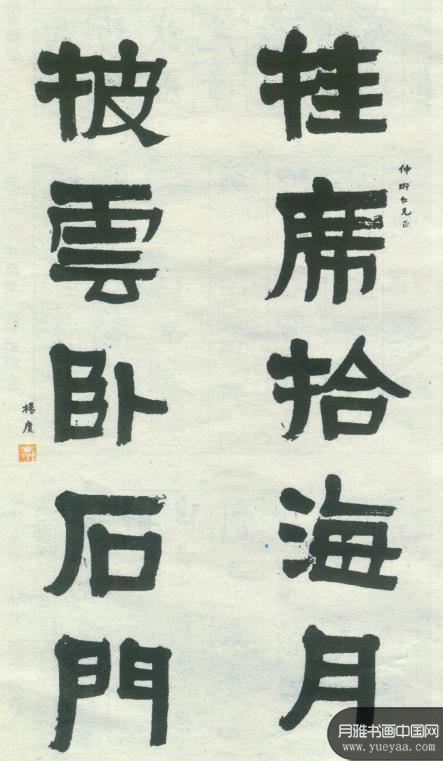 挂席拾海月
仲仁兄正
披雲卧石門
楊度
月雅书画中国网
www.yueyaa.com